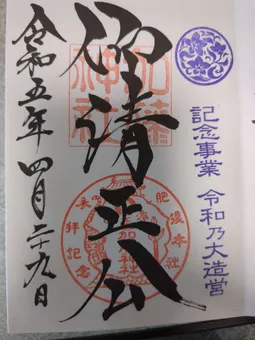 記念事業 令和乃大造営
仰清正公
加藤
神社
肥後本社
加藤神社
拝記念
令和五年四月二十九日